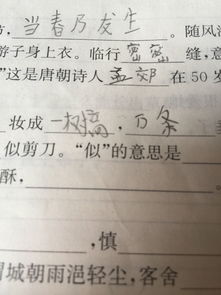 ，当春乃发生。随风潜
游子身上衣。临行密密缝，意
”这是唐朝诗人孟郊在50岁
妆成一树高，万条
似剪刀。“似”的意思是
酥，
，慎
渭城朝雨浥轻尘，客舍